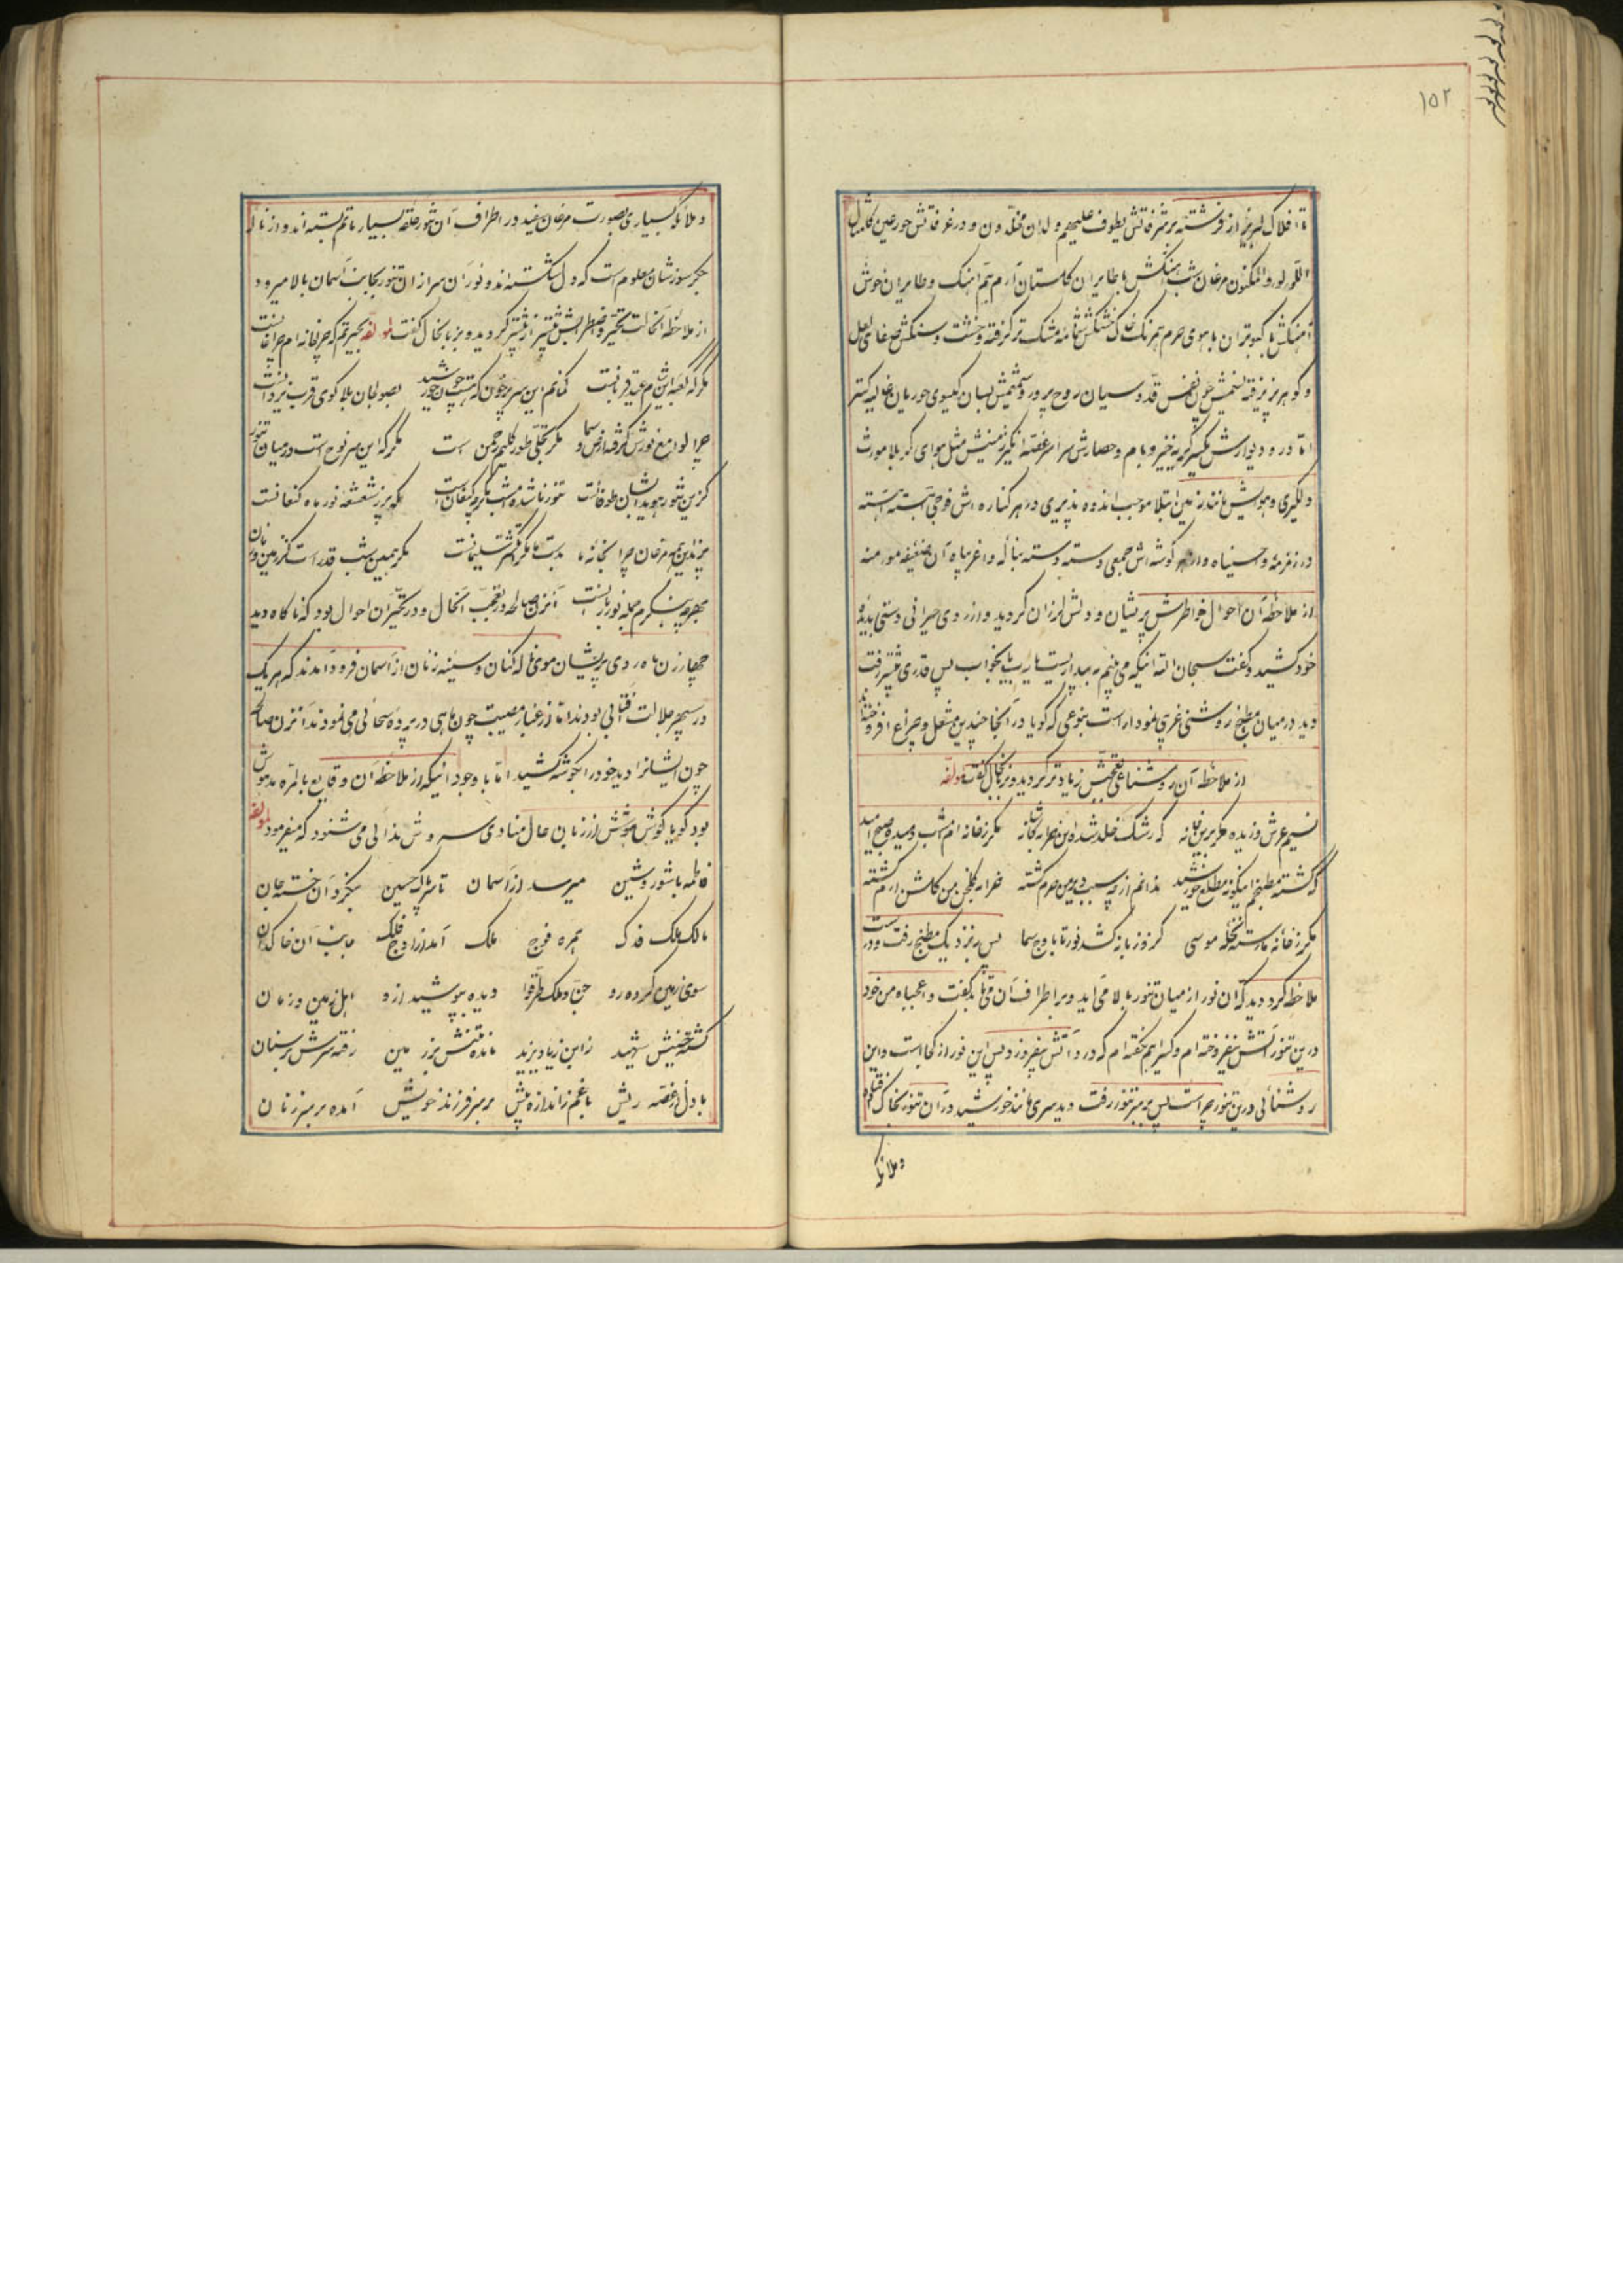 ۱۵۲
افلاک لبریز از فرشته بر شرفاتش یطوف علیهم ولدان مخلدون و در غرفاتش حور عین کامثال
اللؤلوء المکنون مرغان شب آهنگش با طایران گلستان ارم هم آهنگ و طایران خوش
آهنگش با کبوتران یا هوی حرم همرنگ خاک مشک تر گرفته و خشت و سنگش
و گوهر نسیمش چون نفس قدوسیان روح پرور و شمیمش بسان گیسوی حوریان غالیه گستر
اما در و دیوارش یکسر گریه خیز و بام و حصارش سراسر غصه انگیز مثل هوای کربلا مورث
دلگیری و هوایش مانند زمین ابتلا موجب اندوه پذیری در هر کناره اش فوجی آهسته آهسته
در زمزمه وا حسیناه و از هر گوشه اش جمعی دسته دسته بناله وا غریباه آن ضعیفه مؤمنه
از ملاحظه آن احوال خاطرش پریشان و دلش لرزان گردید و از روی حیرانی دستی بدیده
خود کشید و گفت سبحان الله اینکه می بینم به بیداریست یا رب یا بخواب پس قدری پیشتر رفت
دید در میان مطبخ روشنی غریبی نمودار است بنوعی که گویا در آنجا چندین مشعل و چراغ افروخته اند
از ملاحظه آن روشنائی تعجبش زیادتر گردید و بزبانحال گفت لمؤلفه
نسیم عرش وزیده مگر برین خانه که رشک خلد شده این خرابه کاشانه مگر ز خانه ام امشب دمیده صبح امید
که گشته مطبخم اینگونه مطلع خورشید ندانم از چه سبب دیر من حرم گشته چرا گلخن من گلشن ارم گشته
مگر ز خانه ما رسته نخله موسی کز و زبانه کشد نور تا باوج سما پس بنزدیک مطبخ رفت و درست
ملاحظه کرد دید که آن نور از میان تنور بالا می آید و بر اطراف آن می تابد گفت وا عجباه من خود
درین تنور آتش نیفروخته ام و کسی را هم نگفته ام که در و آتش بیفروزد پس این نور از کجا است و این
روشنائی درین تنور چراست پس بر سر تنور رفت دید سری مانند خورشید در آن تنور بخاک افتاده
و ملائکه
و ملائکه بسیاری بصورت مرغان سفید در اطراف آن تنور حلقه بسیار ماتم بسته اند و از ناله
جگر سوزشان معلوم است که دل شکسته اند و نور آن سر از آن تنور بجانب آسمان بالا میرود
از ملاحظه آنحالت تحیر و اضطرابش بیشتر از پیشتر گردید و بزبانحال گفت لمؤلفه بحیرتم که چرا خانه ام چراغانست
مگر که لیله این شام عید قربانست گمانم این سر پرخون که هست چون خورشید بصولجان بلا گوی قرب یزدانست
چرا لوامع نورش گرفته ارض و سما مگر تجلی طور کلیم رحمن است مگر که این سر نوح است در میان تنور
کزین تنور هویدا نشان طوفانست تنور ما شده امشب مگر چه کنعان است که پر ز شعشعه نور ماه کنعانست
پرندین همه مرغان چرا بخانه ما بدست ما مگر انگشتر سلیمانست مگر همین شب قدر است کز زمین و زمان
بهر چه بنگرم جمله نور یزدانست آنزن صالحه در تعجب آنحال و در تحیر آن احوال بود که ناگاه دید
چهار زن ماه روی پریشان موی ناله کنان و سینه زنان از آسمان فرود آمدند که هر یک
در سپهر جلالت آفتابی بودند اما از غبار مصیبت چون ماهی در پرده سحابی می نمودند آنزن صالحه
چون ایشانرا دید خود را بگوشه کشید اما با وجود اینکه از ملاحظه آن وقایع بالمره مدهوش
بود گویا گوش هوشش از زبان حال منادی سروش ندائی می شنود که میفرمود لمؤلفه
فاطمه با شور و شین میرسد از آسمان تا سر پاک حسین بنگرد آن خسته جان
مالک ملک فدک همره فوج ملک آمد از اوج فلک جانب آن خاکدان
سوی زمین کرده رو جن و ملک طرقوا دیده بپوشید ازو اهل زمین و زمان
کشته حسینش شهید ز ابن زیاد و یزید مانده تنش بر زمین رفته سرش بر سنان
با دل از غصه ریش با غم ز اندازه بیش بر سر فرزند خویش آمده بر سر زنان